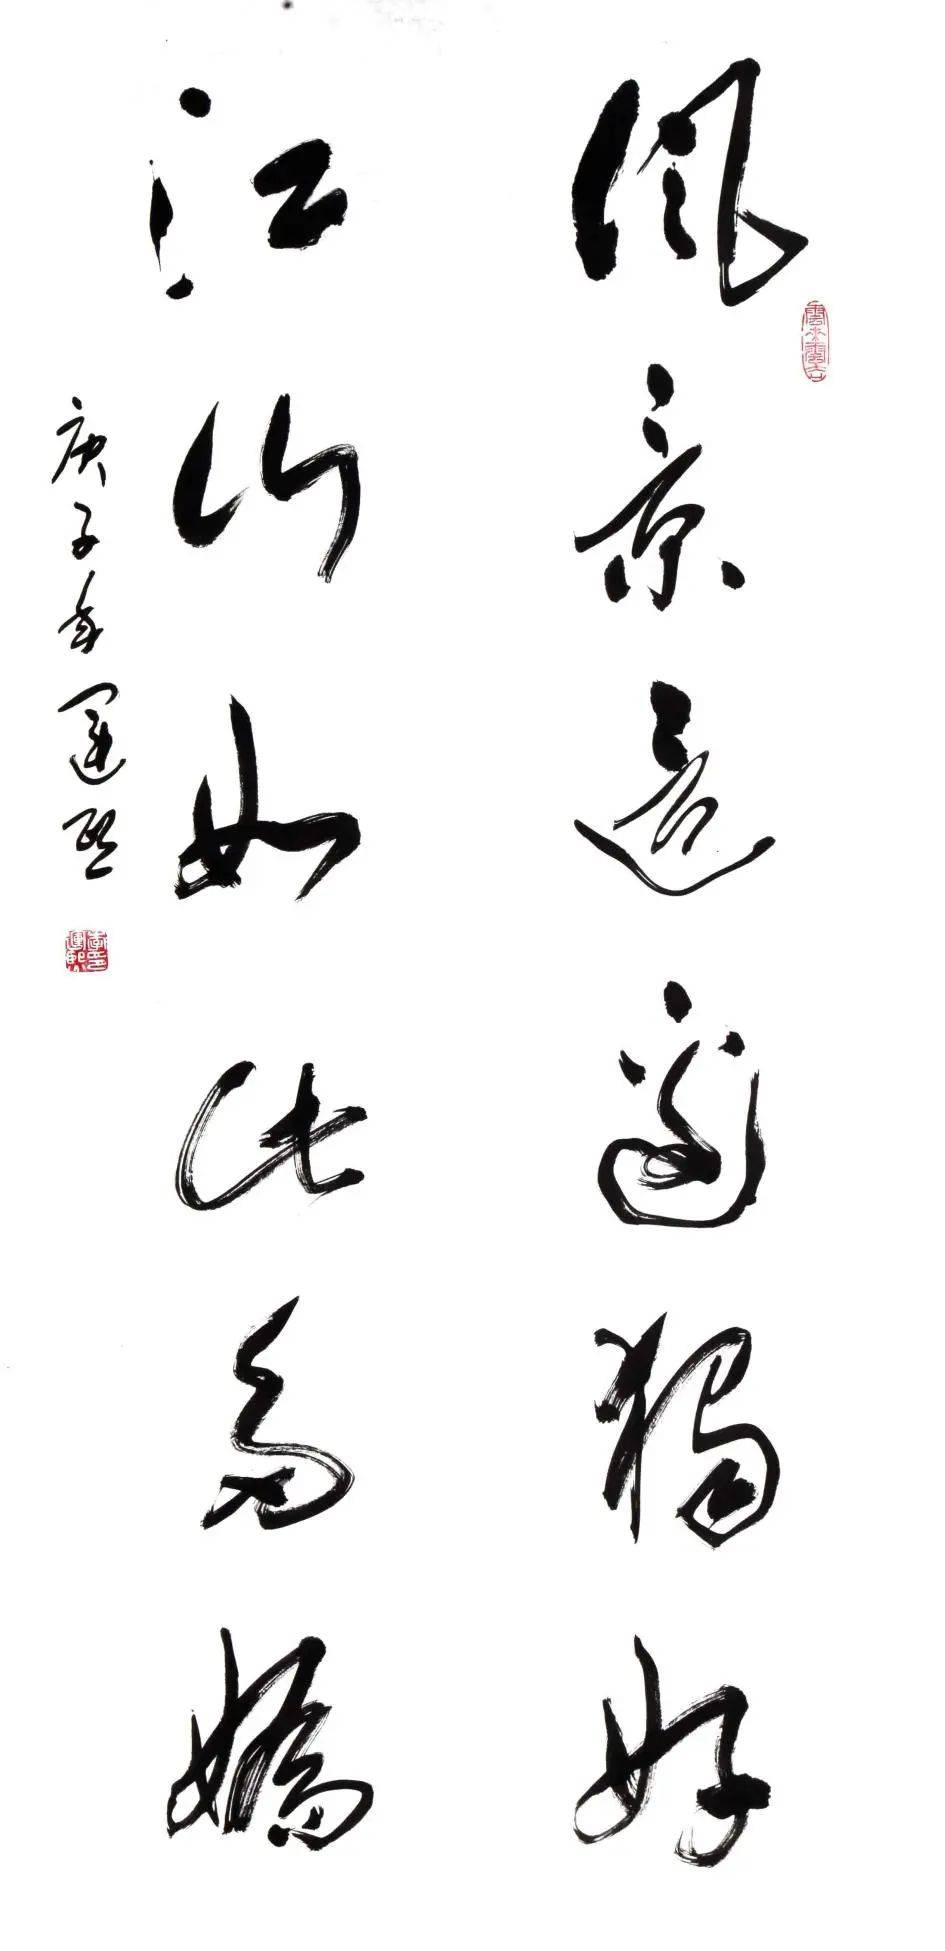 風景這邊獨好
江山如此多嬌
庚子年運熙